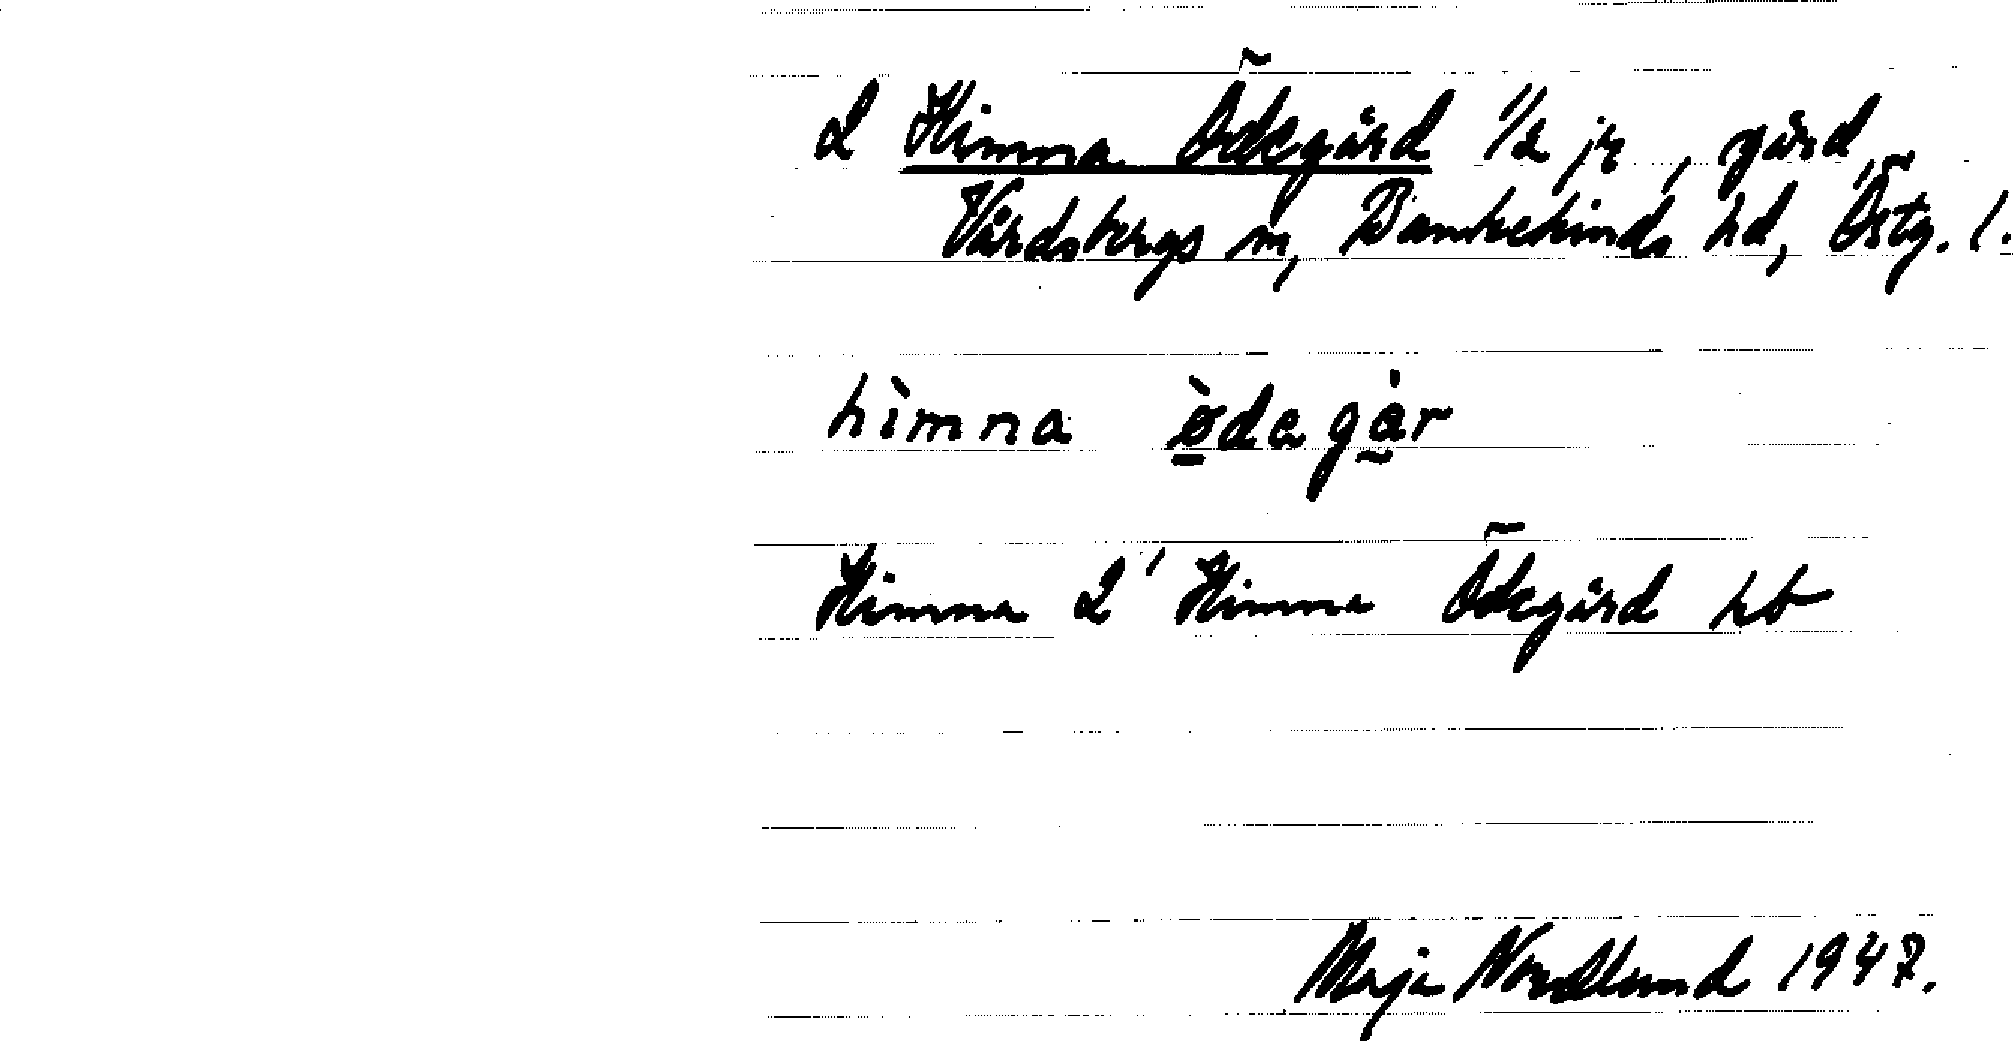 L Himna Ödegård 1/2 jr, gård,
Vårdsbergs sn, Bankekinds hd, Östg. l.
hìmna ödegår
Himna L' Himna Ödegård hb
Maja Nordlund 1947.